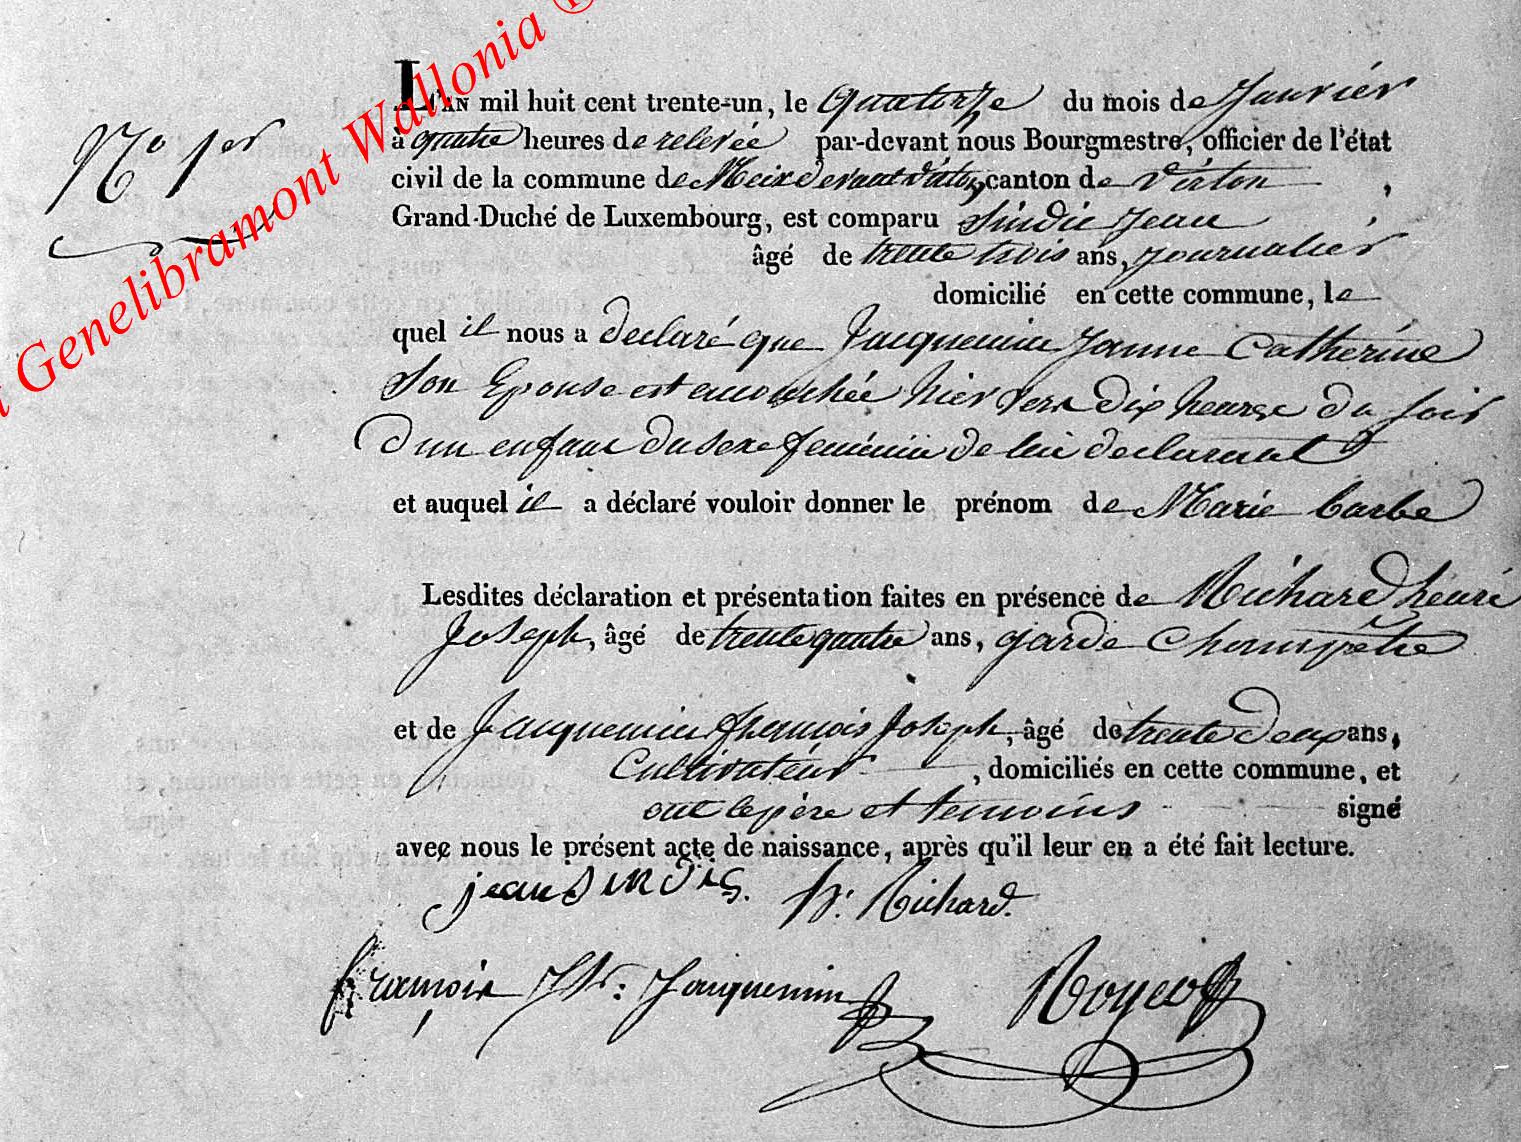 Genelibramont Wallonia ©
No 1er
L'AN mil huit cent trente-un, le Quatorze du mois de Janvier
à quatre heures de relevée par-devant nous Bourgmestre, officier de l'état
civil de la commune de Meix devant Virton, canton de Virton,
Grand-Duché de Luxembourg, est comparu Sindic Jean
âgé de trente trois ans, journalier
domicilié en cette commune, le
quel il nous a declaré que Jacquemin Janne Catherine
Son Epouse est accouchée hier vers dix heures du soir
d'un enfant du sexe feminin de lui declarant
et auquel il a déclaré vouloir donner le prénom de Marie barbe
Lesdites déclaration et présentation faites en présence de Richard henri
Joseph, âgé de trente quatre ans, garde Champêtre
et de Jacquemin francois Joseph, âgé de trente deux ans,
Cultivateur, domiciliés en cette commune, et
ont le père et temoins signé
avec nous le présent acte de naissance, après qu'il leur en a été fait lecture.
jean SINDIC. h. Richard.
françois Jh: Jacquemin